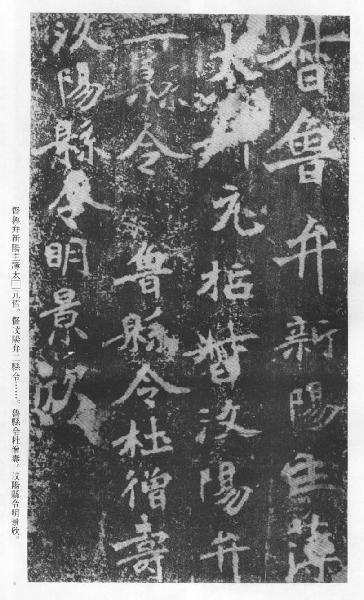 督魯弁新陽主簿
太□元恬督汶陽弁
二縣令 魯縣令杜僧壽
汶陽縣令明景欣
督魯弁新陽主簿太□元恬。督汶陽弁二縣令……。魯縣令杜僧壽。汶陽縣令明景欣。